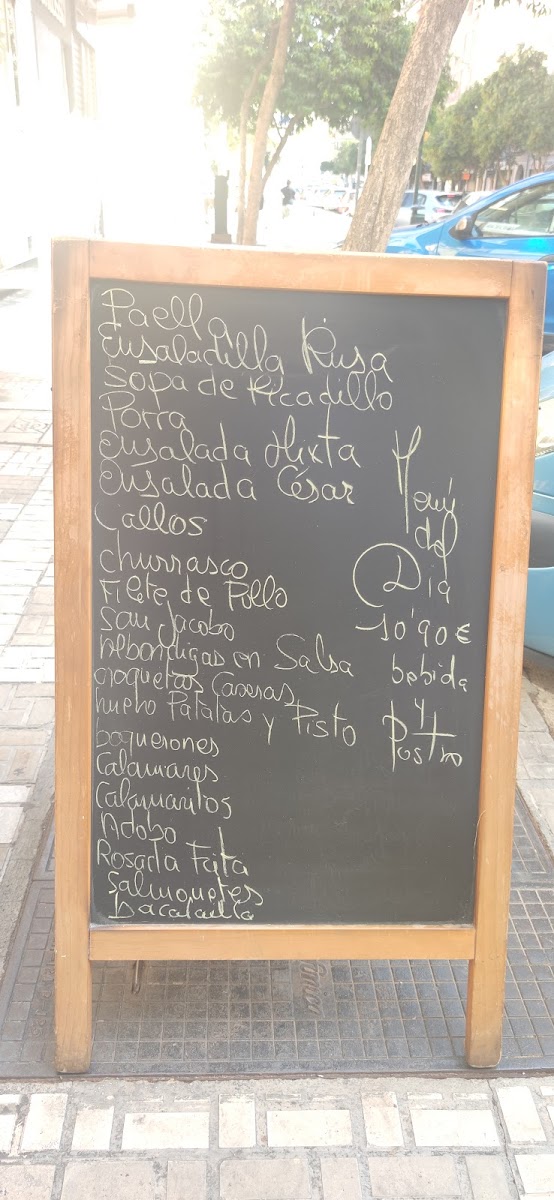 Paella
Ensaladilla Rusa
Sopa de Picadillo
Porra
Ensalada Mixta
Ensalada César
Callos
churrasco
Filete de Pollo
San Jacobo
Albondigas en Salsa
croquetas Caseras
huevo Patatas y Pisto
boquerones
Calamares
Calamaritos
Adobo
Rosada Frita
Salmonetes
Bacaladilla
Menú
del
Dia
10'90€
bebida
y
Postre